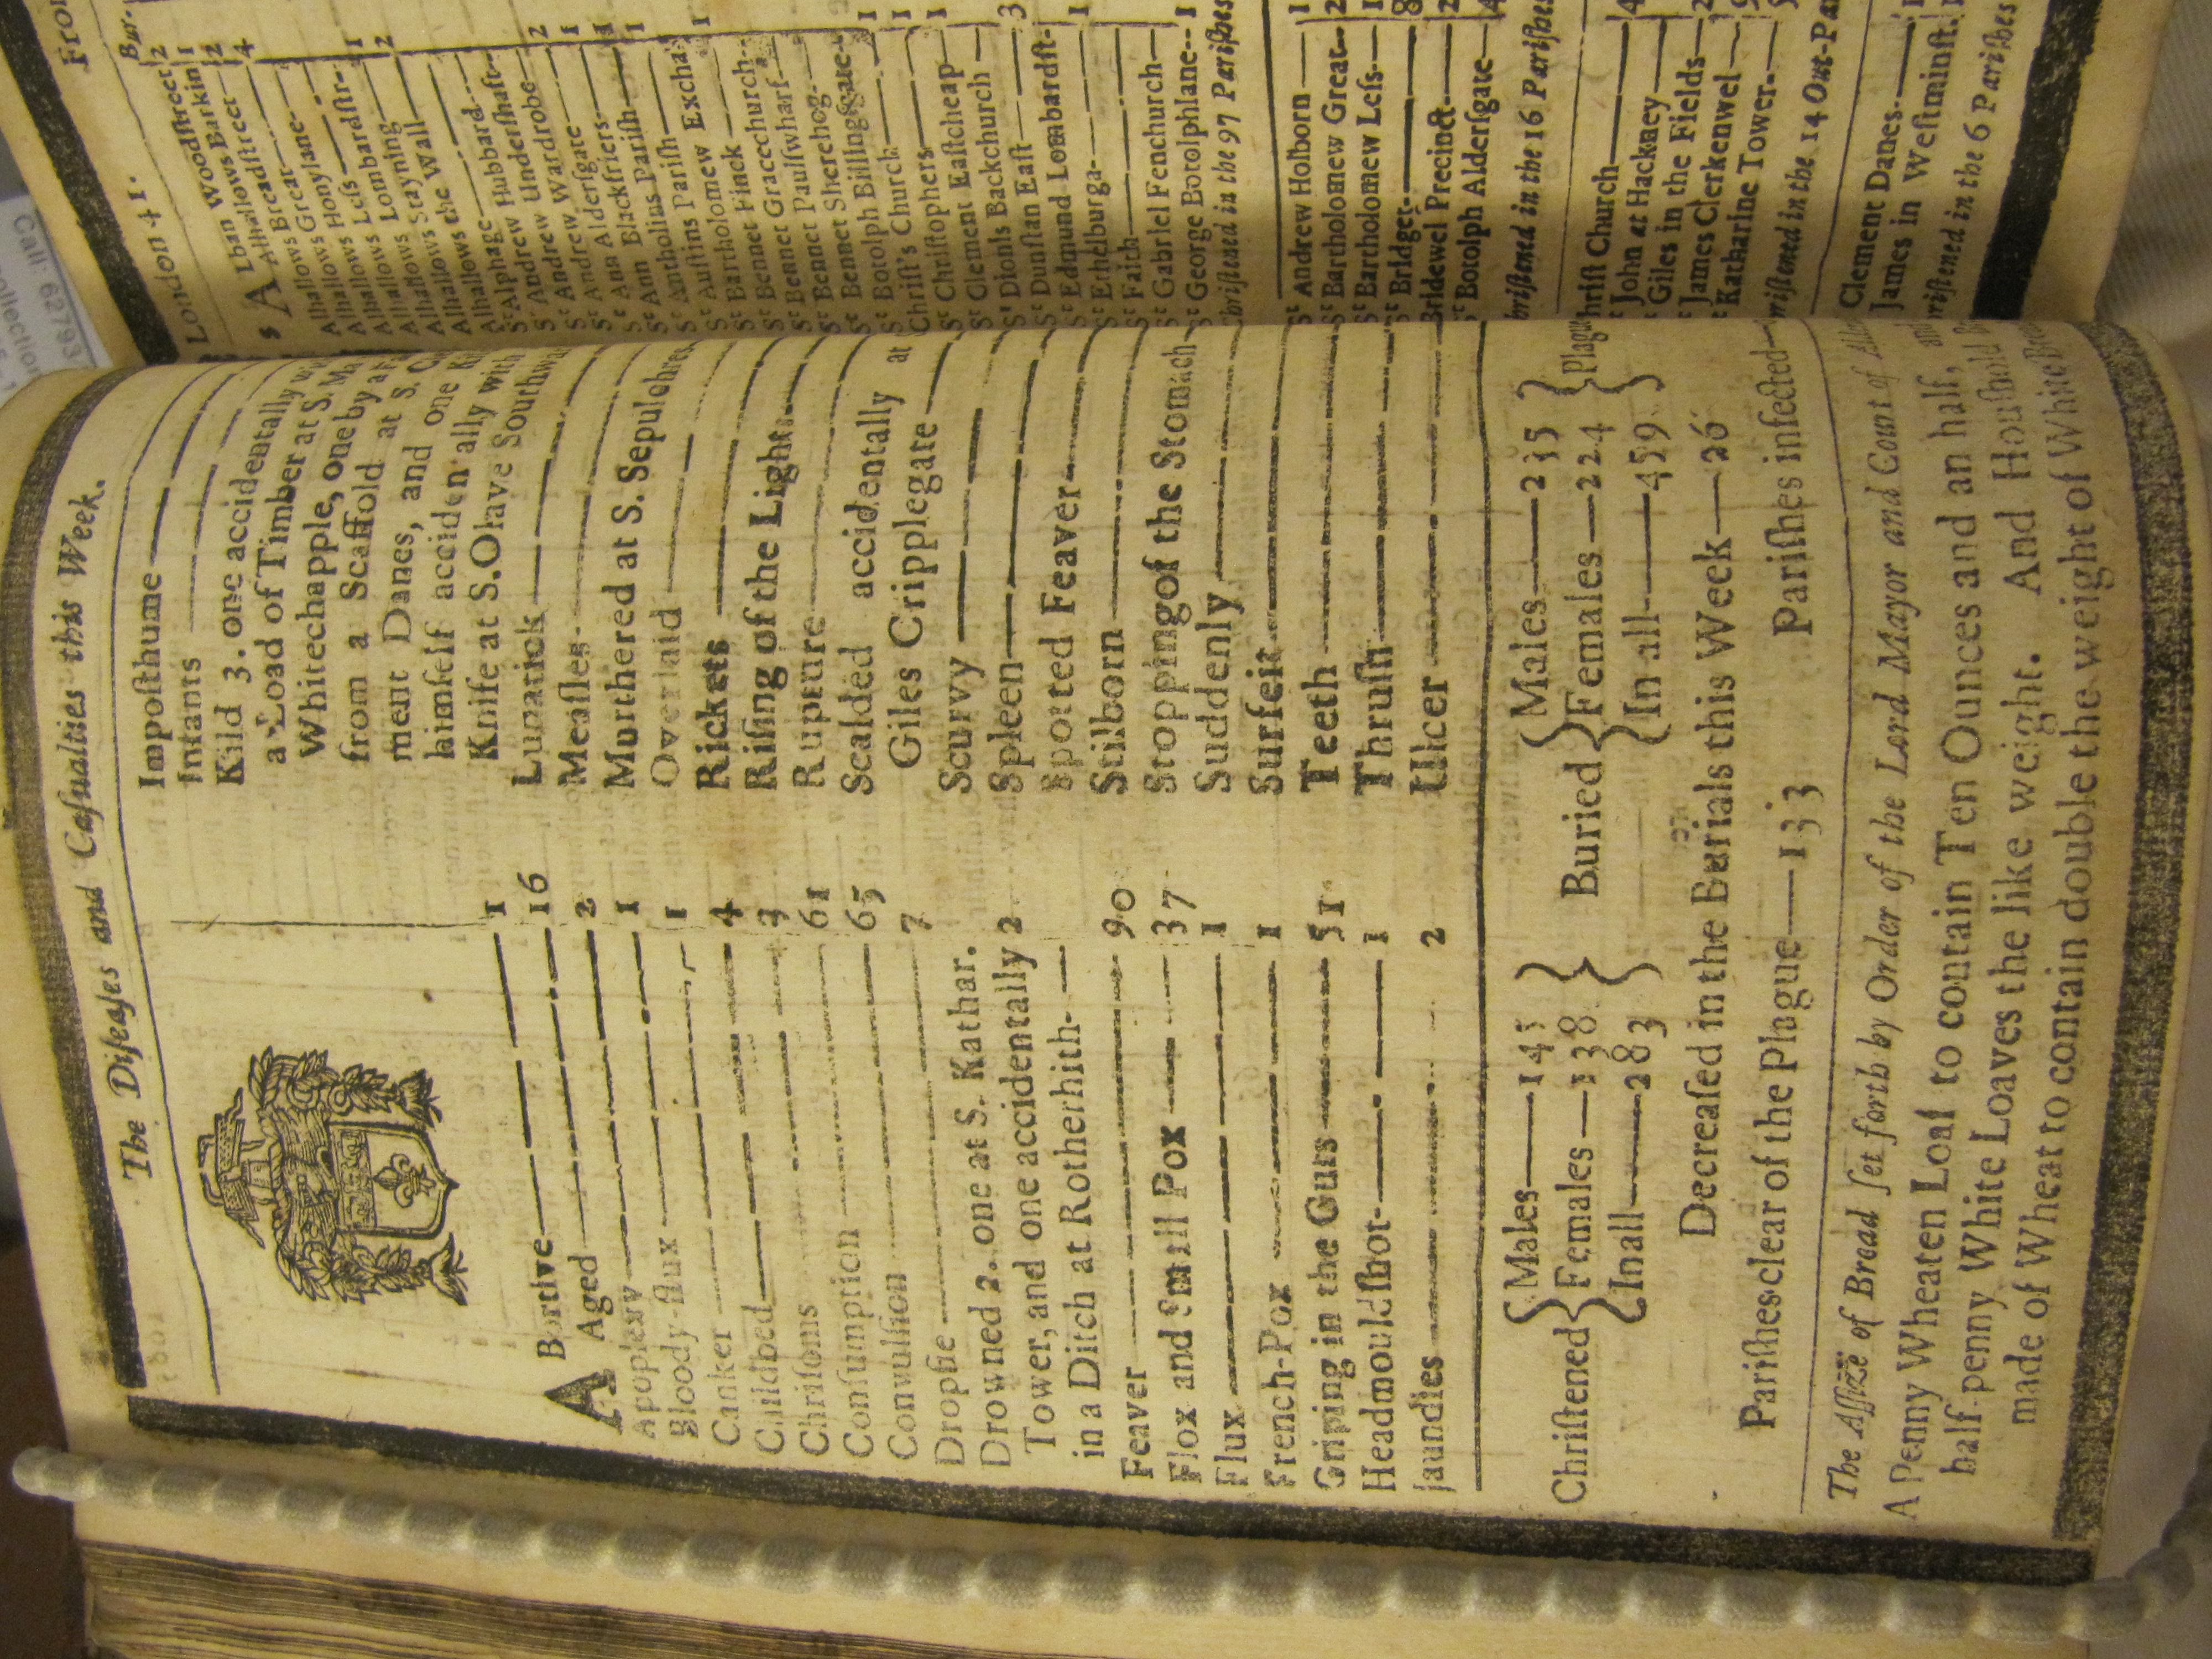 The Diſeaſes and Caſualties this Week.
ABortive 1
Aged 16
Apoplexy 2
Bloody-flux 1
Canker 1
Childbed 4
Chriſoms 3
Conſumption 61
Convulſion 65
Dropſie 7
Drowned 2. one at S. Kathar.
Tower, and one accidentally 2
in a Ditch at Rotherhith-
Feaver 90
Flox and Small Pox 37
Flux 1
French-Pox 1
Griping in the Guts 51
Headmouldſhot- 1
Jaundies 2
Impoſthume
Infants
Kild 3. one accidentally
a Load of Timber at S.
Whitechapple, one by a
from a Scaffold at S.
ment Danes, and one
himſelf accidentally with
Knife at S. Olave
Lunatick
Meaſles
Murthered at S.
Overlaid
Rickets
Riſing of the Lights
Rupture
Scalded accidentally at
Giles Cripplegate
Scurvy
Spleen
Spotted Feaver
Stilborn
Stopping of the Stomach
Suddenly
Surfeit
Teeth
Thruſh
Ulcer
Chriſtened { Males 145 Females 138 In all 283 }
Buried { Males 235 Females 224 In all 459 } Plague
Decreaſed in the Burials this Week 26
Pariſhes clear of the Plague 133 Pariſhes infected
The Aſſize of Bread ſet forth by Order of the Lord Mayor and Court of
A Penny Wheaten Loaf to contain Ten Ounces and an half, and
half-penny White Loaves the like weight. And Houſhold
made of Wheat to contain double the weight of White
London 41.
Bur.
S ALban Woodſtreet 2
Alhallows Barkin 1
Alhallows Breadſtreet 2
Alhallows Great 4
Alhallows Honylane
Alhallows Leſs
Alhallows Lombardſtr- 1
Alhallows Stayning 2
Alhallows the Wall
Alphage
St Andrew Hubbard
St Andrew Underſhaft
St Andrew Wardrobe 2
St Ann Alderſgate 1
St Ann Blackfriers 1
St Antholins Pariſh 1
St Auſtins Pariſh
St Bartholomew Exchan 1
St Bennet Finck
St Bennet Gracechurch
St Bennet Paulſwharf
St Bennet Sherehog
St Botolph Billingſgate
Chriſt's Church 1
St Chriſtophers 1
St Clement Eaſtcheap 1
St Dionis Backchurch
St Dunſtan Eaſt 3
St Edmund Lombardſt-
St Ethelburga 1
St Faith
St Gabriel Fenchurch
St George Botolphlane 1
hriſtened in the 97 Pariſhes
St Andrew Holborn 1
St Bartholomew Great 2
St Bartholomew Leſs 1
St Bridget 8
Bridewel Precinct 2
St Botolph Alderſgate 4
hriſtened in the 16 Pariſhes
hriſt Church 4
John at Hackney
Giles in the Fields 2
James Clerkenwel
Katharine Tower
riſtened in the 14 Out-Pa
Clement Danes
James in Weſtminſt.
riſtened in the 6 Pariſhes
Call: 62793
ollection